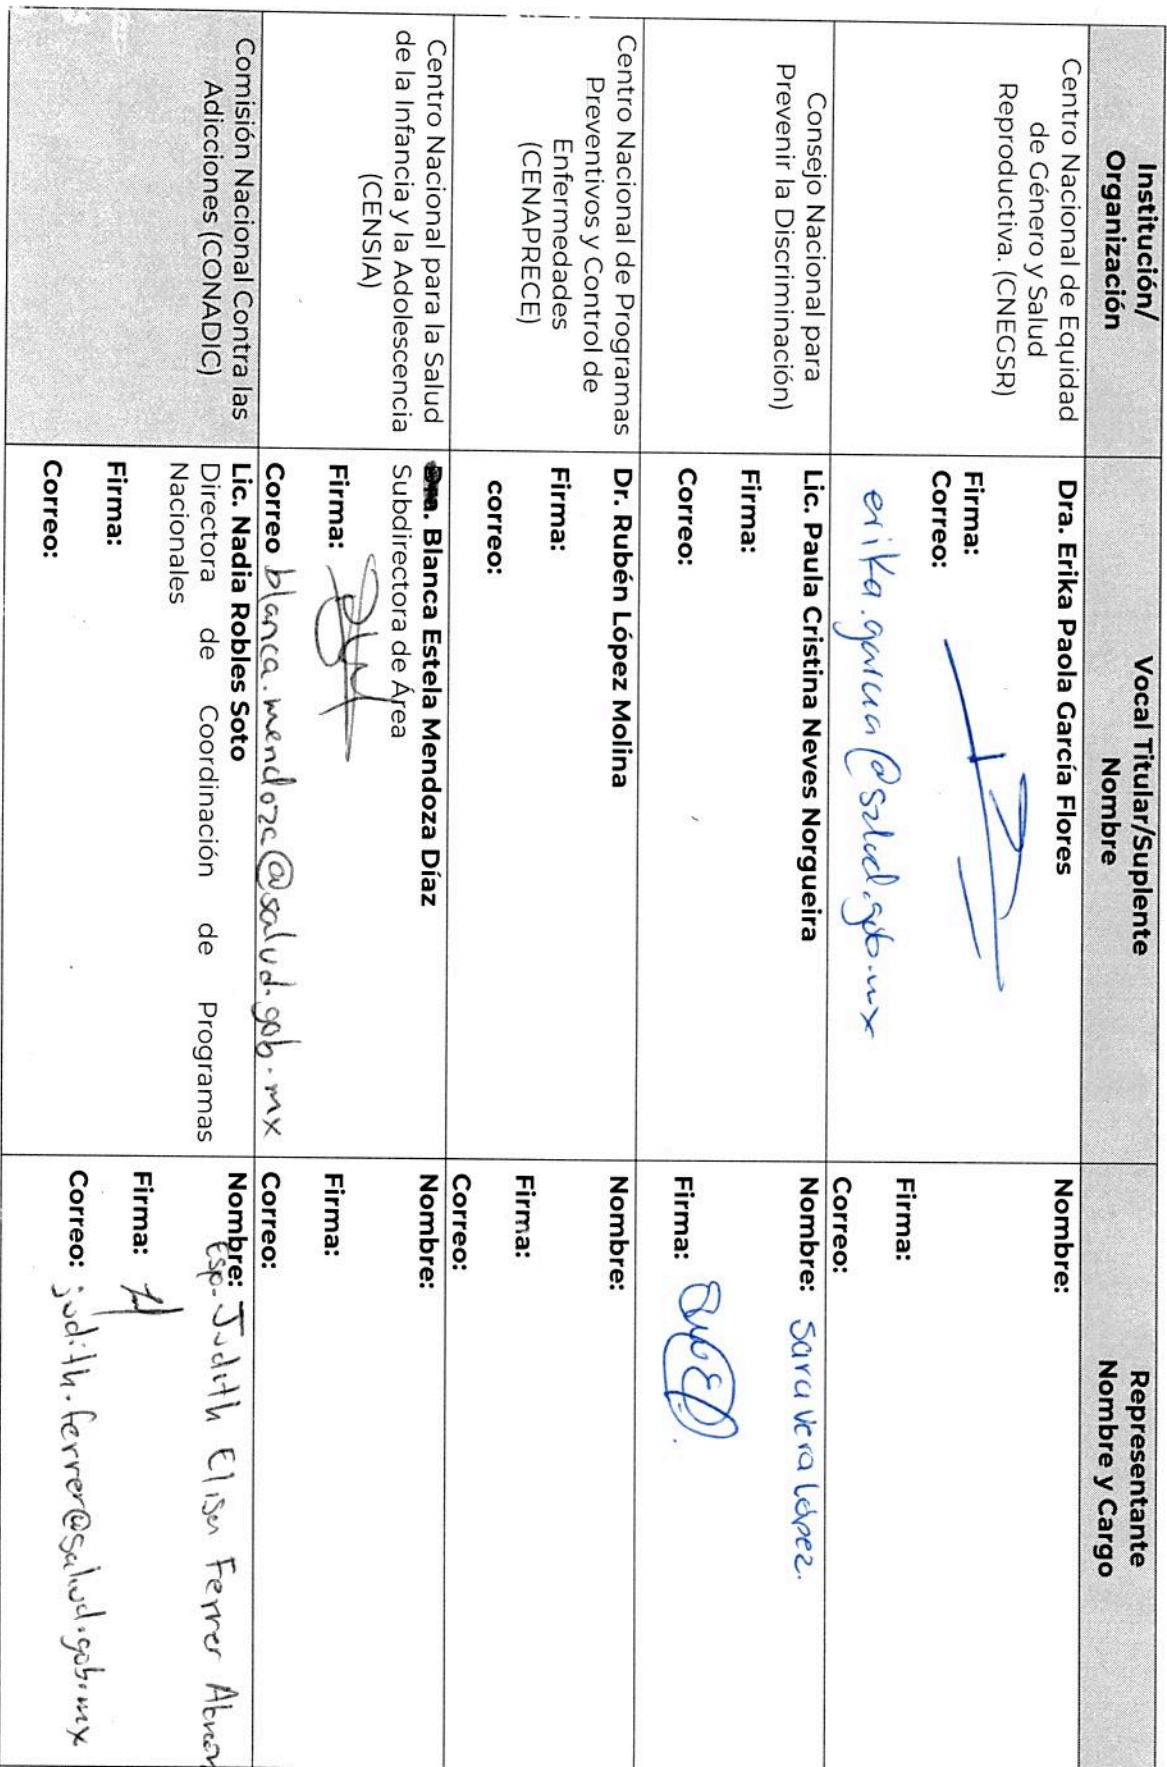 Institución/
Organización
Vocal Titular/Suplente
Nombre
Representante
Nombre y Cargo
Centro Nacional de Equidad
de Género y Salud
Reproductiva. (CNEGSR)
Dra. Erika Paola García Flores
Firma:
Correo:
erika.garcia@salud.gob.mx
Nombre:
Firma:
Correo:
Consejo Nacional para
Prevenir la Discriminación)
Lic. Paula Cristina Neves Norgueira
Firma:
Correo:
Nombre: Sara Vera López.
Firma:
Centro Nacional de Programas
Preventivos y Control de
Enfermedades
(CENAPRECE)
Dr. Rubén López Molina
Firma:
correo:
Nombre:
Firma:
Correo:
Centro Nacional para la Salud
de la Infancia y la Adolescencia
(CENSIA)
Dra. Blanca Estela Mendoza Díaz
Subdirectora de Área
Firma:
Correo blanca.mendoza@salud.gob.mx
Nombre:
Firma:
Correo:
Comisión Nacional Contra las
Adicciones (CONADIC)
Lic. Nadia Robles Soto
Directora de Coordinación de Programas
Nacionales
Firma:
Correo:
Nombre:
Esp. Judith Elisa Ferrer
Firma:
Correo: judith.ferrer@salud.gob.mx